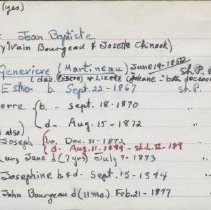 (yes)
Jean Baptiste
(Sylvain Bourgeau & Josette Chinook)
Genevieve (Martineau) June 19-1858 St.P.
(dau. Pierre & Lizette : both deceased
Esther b. Sept. 22-1867 St.P.
erre (b. - Sept. 18-1870
(d. Aug. 15-1872
also)
Joseph (b. Dec. 31-1872
(d- Aug. 11-1894
ary Jane d (7 yrs) July 9-1873
Josephine b&d - Sept. 15-1874
John Bourgeau d (11 mo.) Feb. 21-1877